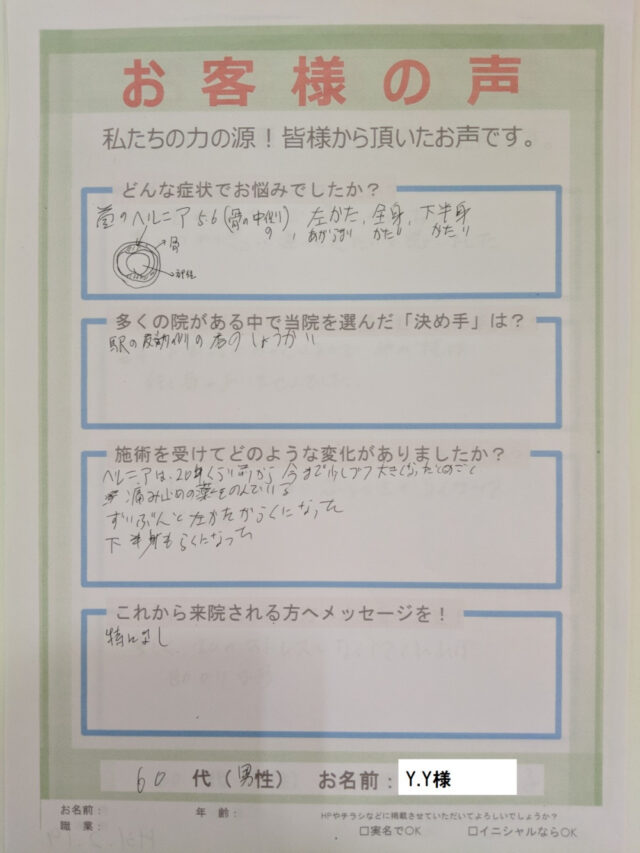 お客様の声
私たちの力の源！皆様から頂いたお声です。
どんな症状でお悩みでしたか？
首のヘルニア 5.6 (骨の中側) 左かた, 全身, 下半身
の かたい かたい
骨
神経
多くの院がある中で当院を選んだ「決め手」は？
駅の反対側の店のしょうかい
施術を受けてどのような変化がありましたか？
ヘルニアは、20年くらい前から 今まで少しづつ大きくなったものでごく
痛み止めの薬をのんでいる
ずいぶんと左かたがらくになった
下半身もらくになった
これから来院される方へメッセージを！
特になし
60 代（男性） お名前：Y.Y様
お名前： 年 齢：
HPやチラシなどに掲載させていただいてよろしいでしょうか？
職 業：
□実名でOK □イニシャルならOK